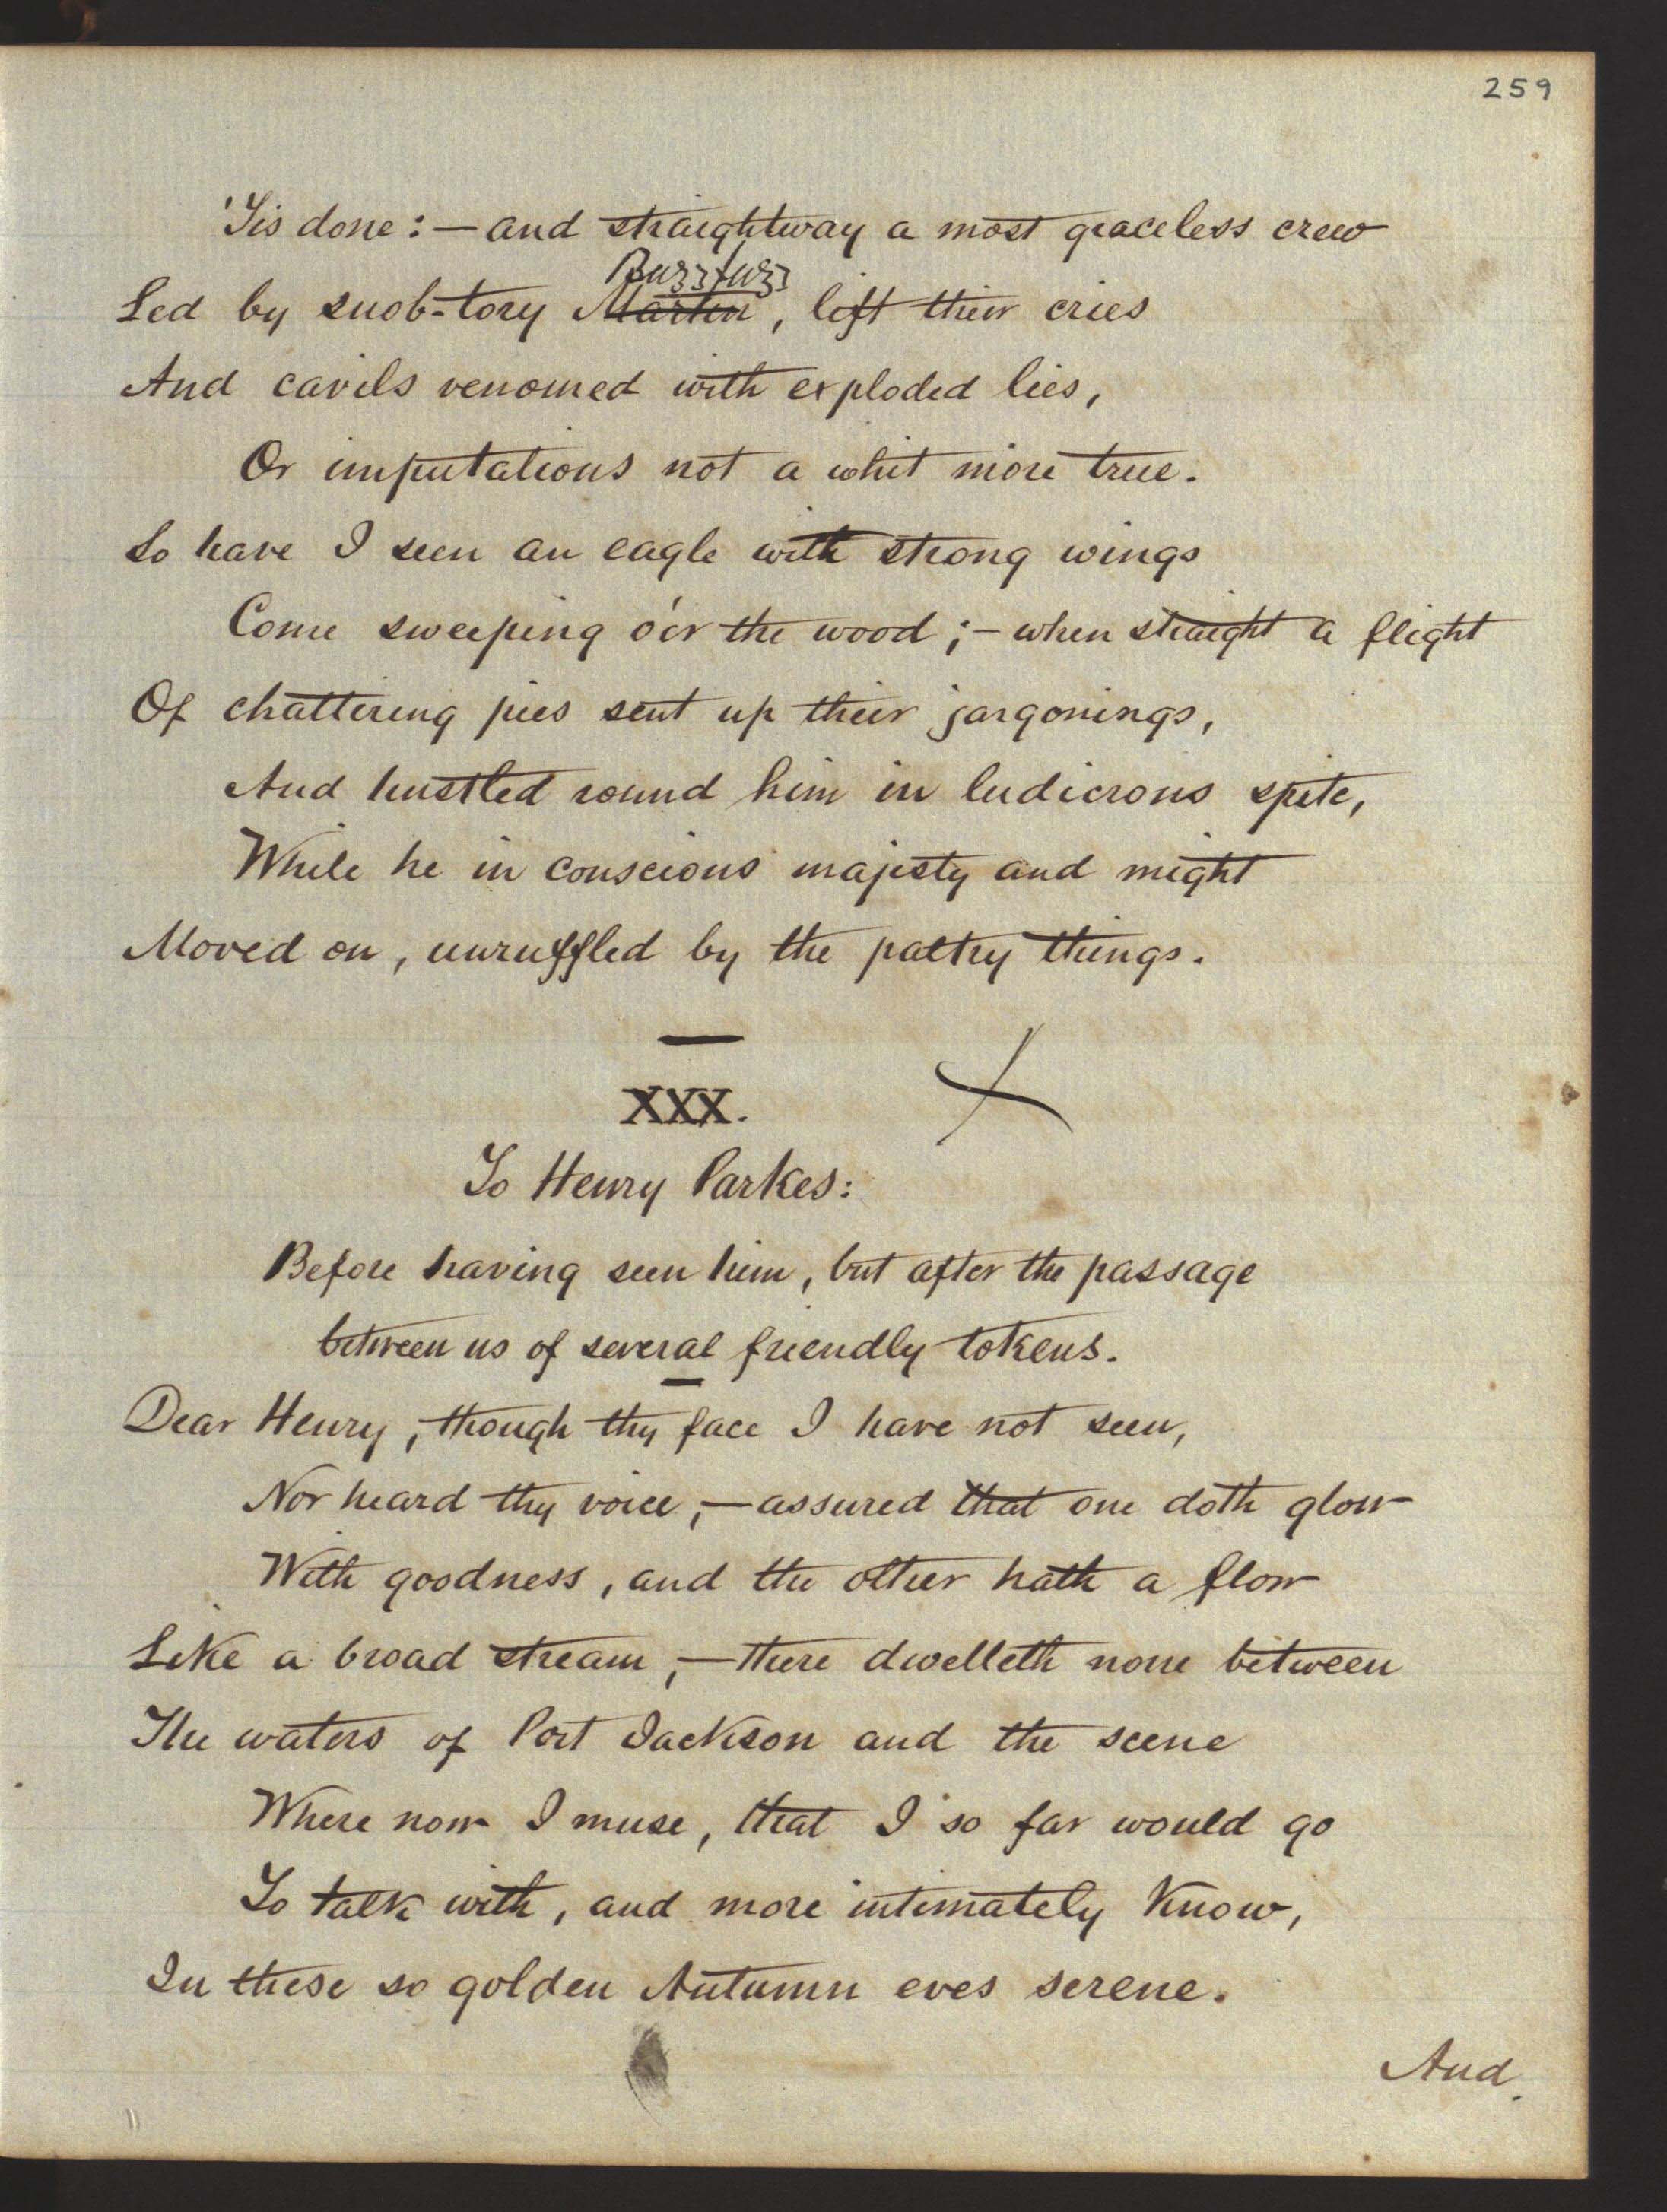 259
'Tis done:—and straightway a most graceless crew
Buzzfuzz
Led by snob-tory Martin, left their cries
And cavils venomed with exploded lies,
Or imputations not a whit more true.
So have I seen an eagle with strong wings
Come sweeping o'er the wood;—when straight a flight
Of chattering pies sent up their jargonings,
And hustled round him in ludicrous spite,
While he in conscious majesty and might
Moved on, unruffled by the paltry things.
XXX.
To Henry Parkes:
Before having seen him, but after the passage
between us of several friendly tokens.
Dear Henry, though thy face I have not seen,
Nor heard thy voice,—assured that one doth glow
With goodness, and the other hath a flow
Like a broad stream,—there dwelleth none between
The waters of Port Jackson and the scene
Where now I muse, that I so far would go
To talk with, and more intimately know,
In these so golden Autumn eves serene.
And